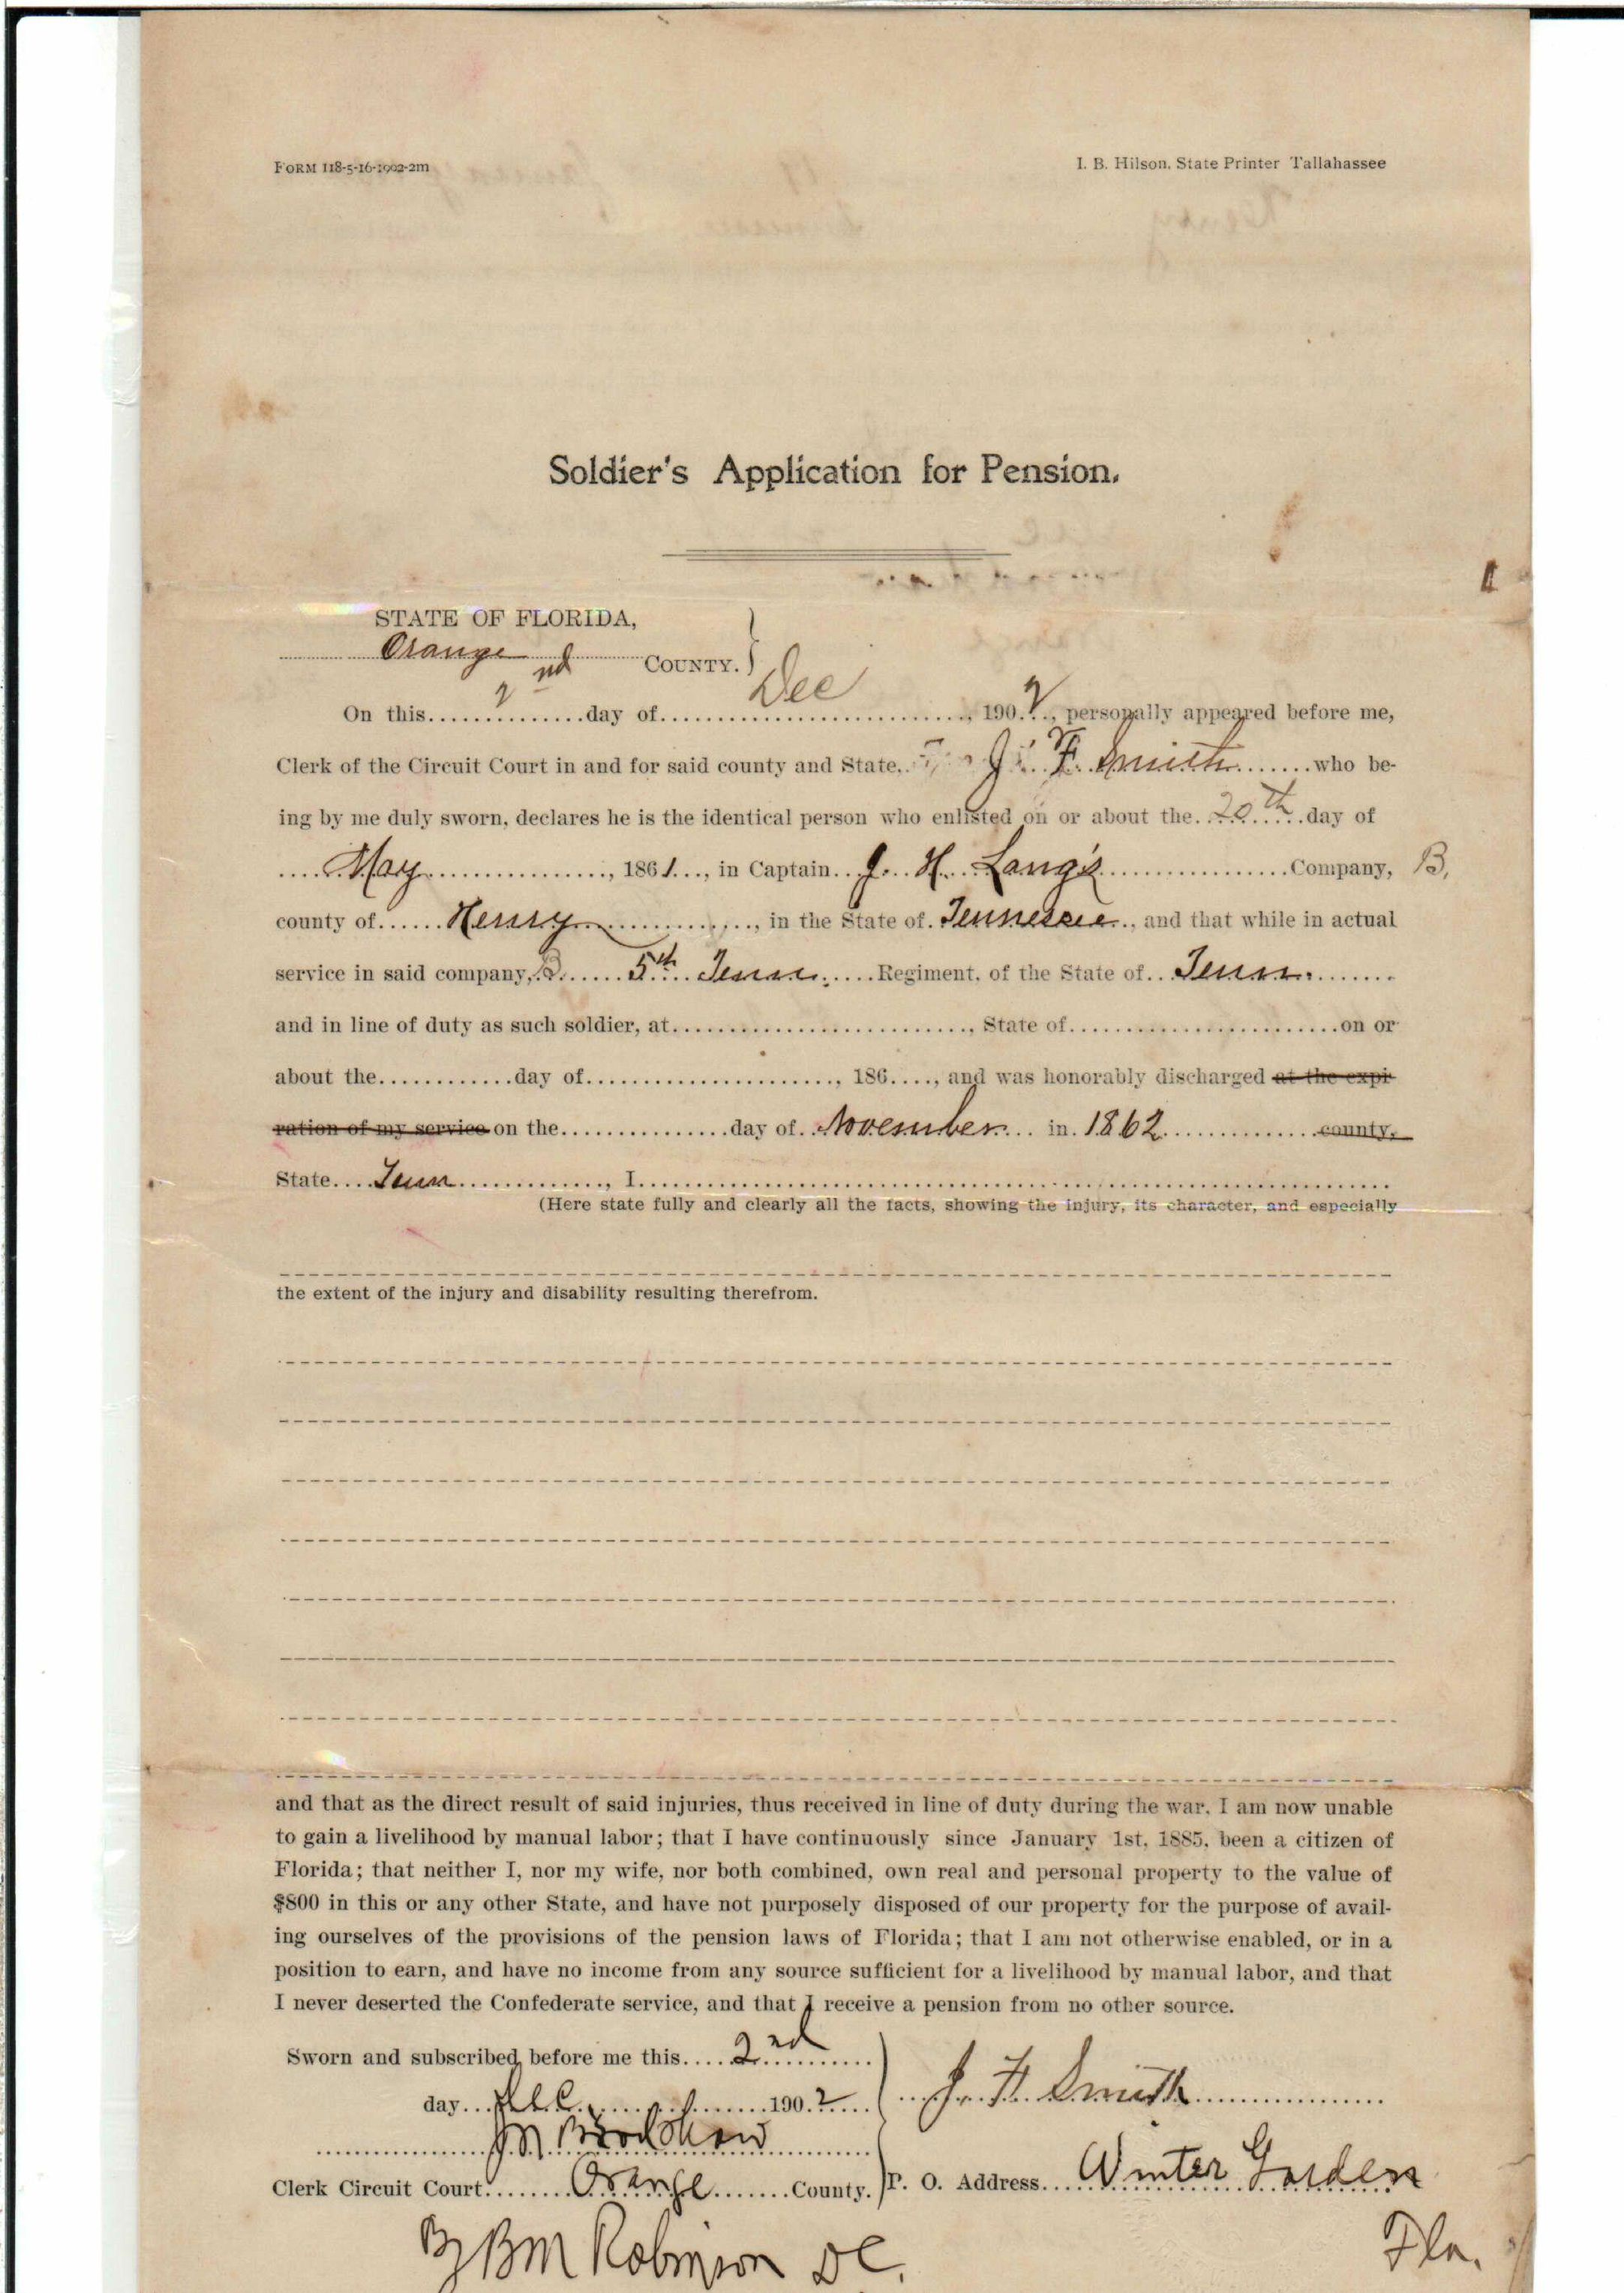 FORM 118-5-16-1902-2m
I. B. Hilson, State Printer Tallahassee
Soldier's Application for Pension.
STATE OF FLORIDA,
Orange COUNTY.
On this 2nd day of Dec, 1902, personally appeared before me,
Clerk of the Circuit Court in and for said county and State, J. F. Smith who be-
ing by me duly sworn, declares he is the identical person who enlisted on or about the 20th day of
May, 1861, in Captain J. H. Lang's Company, B,
county of Henry, in the State of Tennessee, and that while in actual
service in said company, B 5th Tenn. Regiment, of the State of Tenn.
and in line of duty as such soldier, at, State of on or
about the day of, 186, and was honorably discharged at the expi-
ration of my service on the day of November in 1862 county,
State Tenn, I
(Here state fully and clearly all the facts, showing the injury, its character, and especially
the extent of the injury and disability resulting therefrom.
and that as the direct result of said injuries, thus received in line of duty during the war, I am now unable
to gain a livelihood by manual labor; that I have continuously since January 1st, 1885, been a citizen of
Florida; that neither I, nor my wife, nor both combined, own real and personal property to the value of
$800 in this or any other State, and have not purposely disposed of our property for the purpose of avail-
ing ourselves of the provisions of the pension laws of Florida; that I am not otherwise enabled, or in a
position to earn, and have no income from any source sufficient for a livelihood by manual labor, and that
I never deserted the Confederate service, and that I receive a pension from no other source.
Sworn and subscribed before me this 2nd
day Dec 1902
J. F. Smith
J M Bradshaw
Clerk Circuit Court Orange County.
P. O. Address Winter Garden
Fla.
By B M Robinson D C.